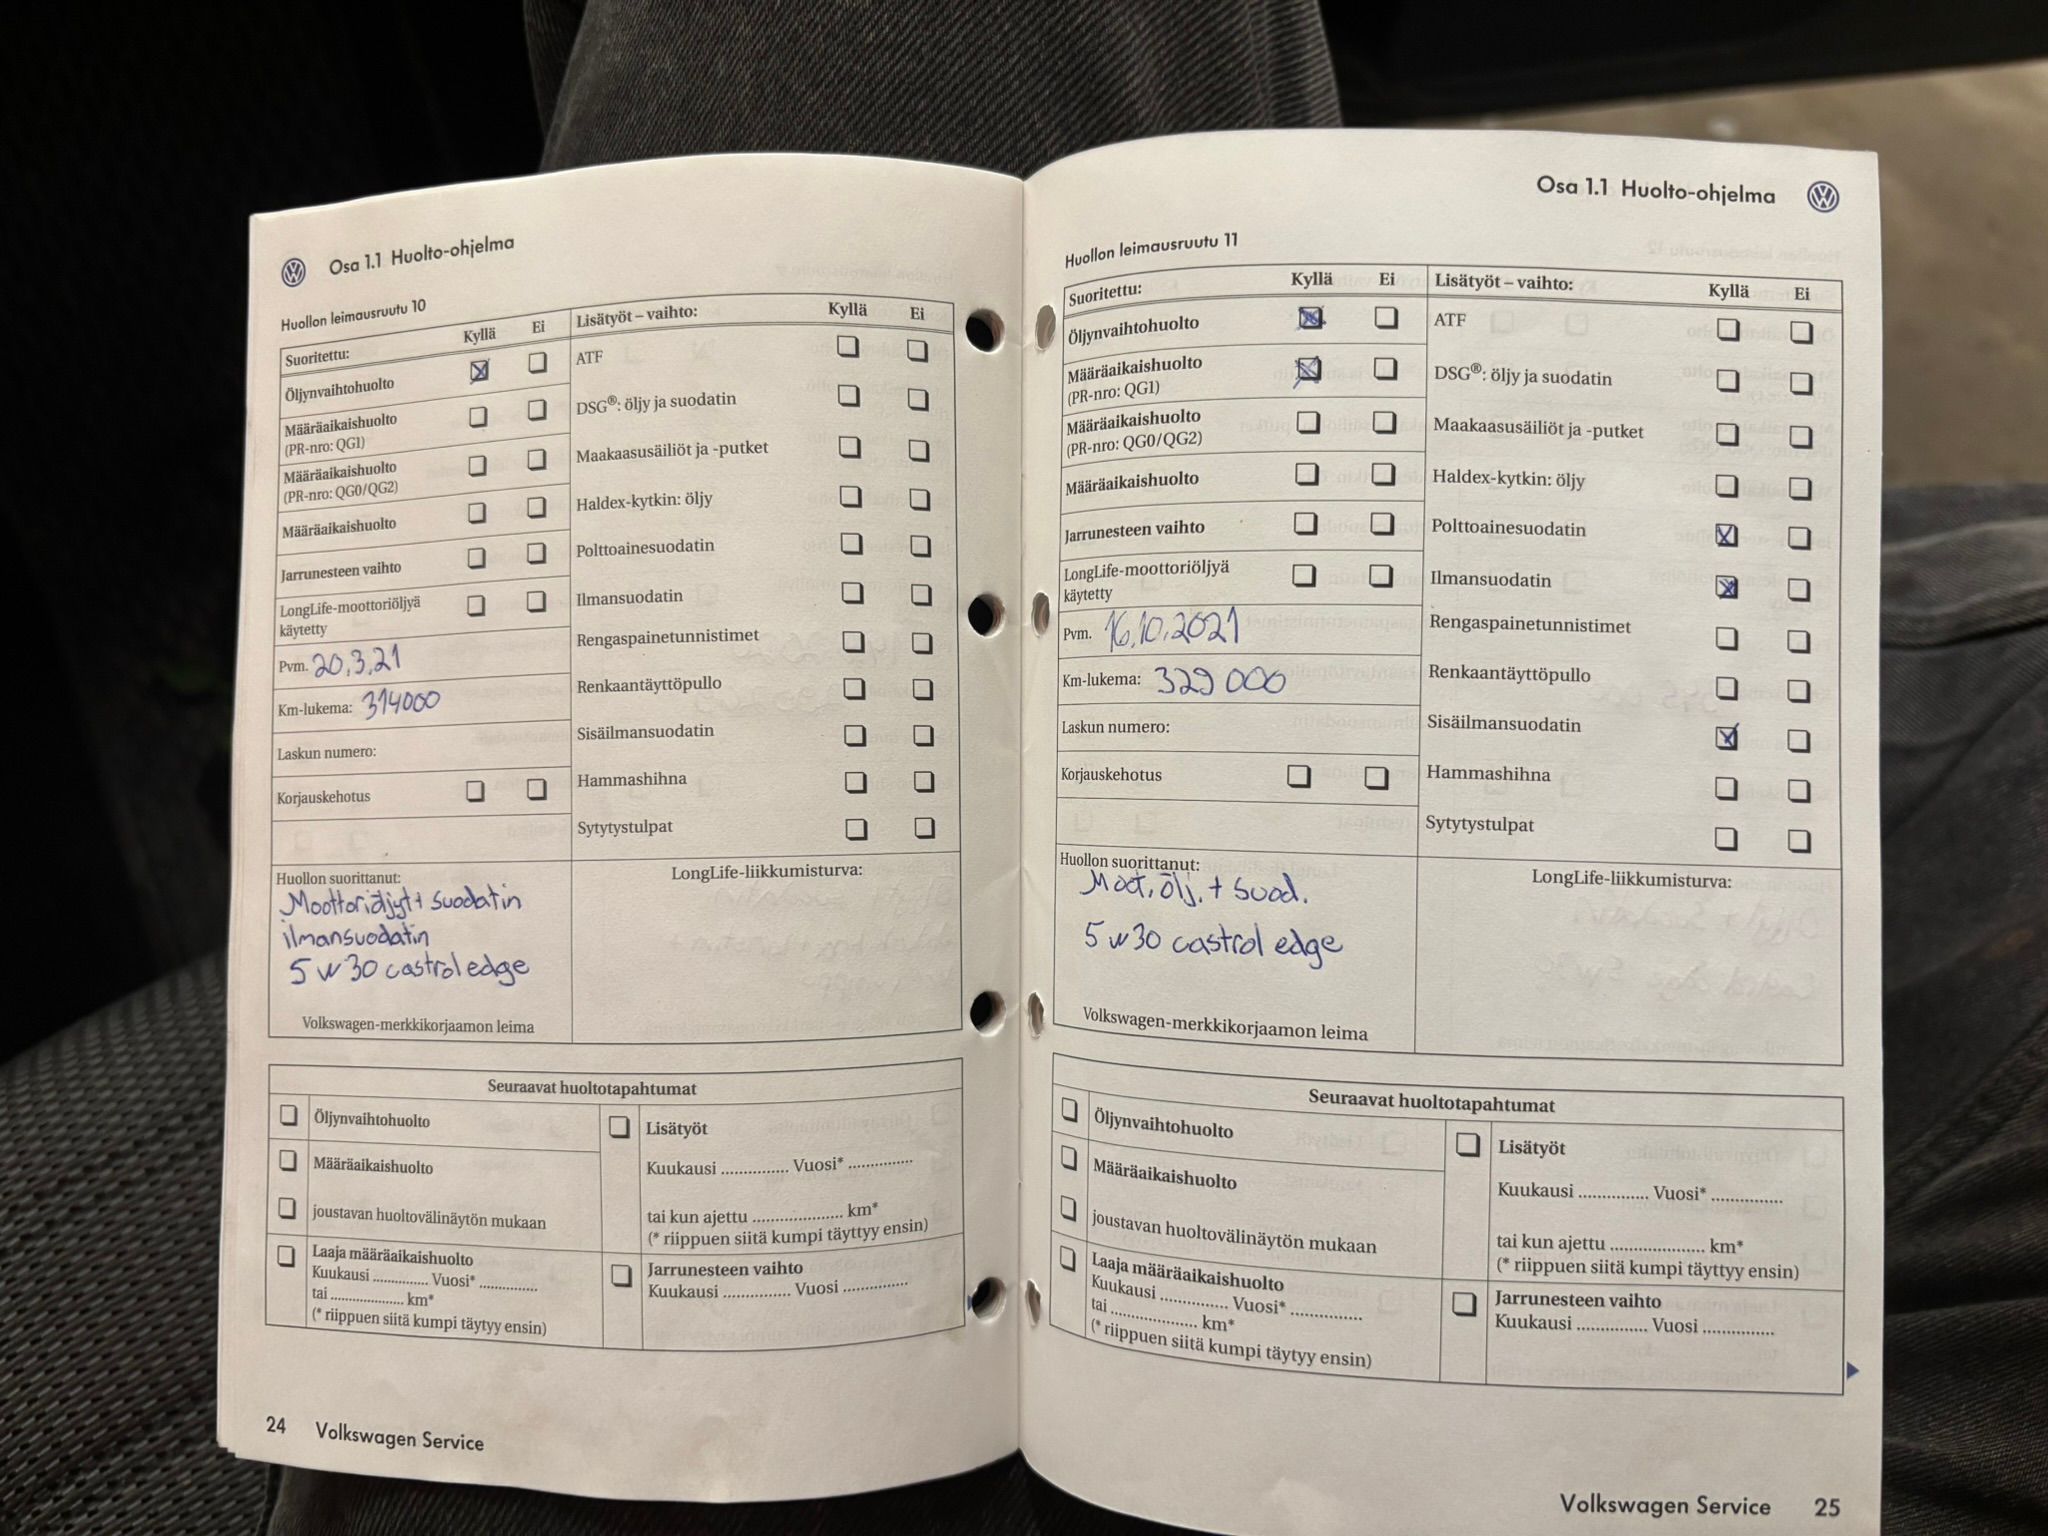 Osa 1.1 Huolto-ohjelma
Huollon leimausruutu 10
Suoritettu: Kyllä Ei
Öljynvaihtohuolto
Määräaikaishuolto
(PR-nro: QG1)
Määräaikaishuolto
(PR-nro: QG0/QG2)
Määräaikaishuolto
Jarrunesteen vaihto
LongLife-moottoriöljyä
käytetty
Pvm. 20.3.21
Km-lukema: 314000
Laskun numero:
Korjauskehotus
Lisätyöt – vaihto: Kyllä Ei
ATF
DSG®: öljy ja suodatin
Maakaasusäiliöt ja -putket
Haldex-kytkin: öljy
Polttoainesuodatin
Ilmansuodatin
Rengaspainetunnistimet
Renkaantäyttöpullo
Sisäilmansuodatin
Hammashihna
Sytytystulpat
Huollon suorittanut:
Moottoriöljyt + suodatin
ilmansuodatin
5w30 castrol edge
Volkswagen-merkkikorjaamon leima
LongLife-liikkumisturva:
Seuraavat huoltotapahtumat
Öljynvaihtohuolto
Määräaikaishuolto
joustavan huoltovälinäytön mukaan
Laaja määräaikaishuolto
Kuukausi .............. Vuosi* ..............
tai .................... km*
(* riippuen siitä kumpi täytyy ensin)
Lisätyöt
Kuukausi .............. Vuosi* ..............
tai kun ajettu .................... km*
(* riippuen siitä kumpi täyttyy ensin)
Jarrunesteen vaihto
Kuukausi .............. Vuosi ..............
24 Volkswagen Service
Osa 1.1 Huolto-ohjelma
Huollon leimausruutu 11
Suoritettu: Kyllä Ei
Öljynvaihtohuolto
Määräaikaishuolto
(PR-nro: QG1)
Määräaikaishuolto
(PR-nro: QG0/QG2)
Määräaikaishuolto
Jarrunesteen vaihto
LongLife-moottoriöljyä
käytetty
Pvm. 16.10.2021
Km-lukema: 329000
Laskun numero:
Korjauskehotus
Lisätyöt – vaihto: Kyllä Ei
ATF
DSG®: öljy ja suodatin
Maakaasusäiliöt ja -putket
Haldex-kytkin: öljy
Polttoainesuodatin
Ilmansuodatin
Rengaspainetunnistimet
Renkaantäyttöpullo
Sisäilmansuodatin
Hammashihna
Sytytystulpat
Huollon suorittanut:
Moot. ölj. + suod.
5w30 castrol edge
Volkswagen-merkkikorjaamon leima
LongLife-liikkumisturva:
Seuraavat huoltotapahtumat
Öljynvaihtohuolto
Määräaikaishuolto
joustavan huoltovälinäytön mukaan
Laaja määräaikaishuolto
Kuukausi .............. Vuosi* ..............
tai .................... km*
(* riippuen siitä kumpi täytyy ensin)
Lisätyöt
Kuukausi .............. Vuosi* ..............
tai kun ajettu .................... km*
(* riippuen siitä kumpi täyttyy ensin)
Jarrunesteen vaihto
Kuukausi .............. Vuosi ..............
Volkswagen Service 25